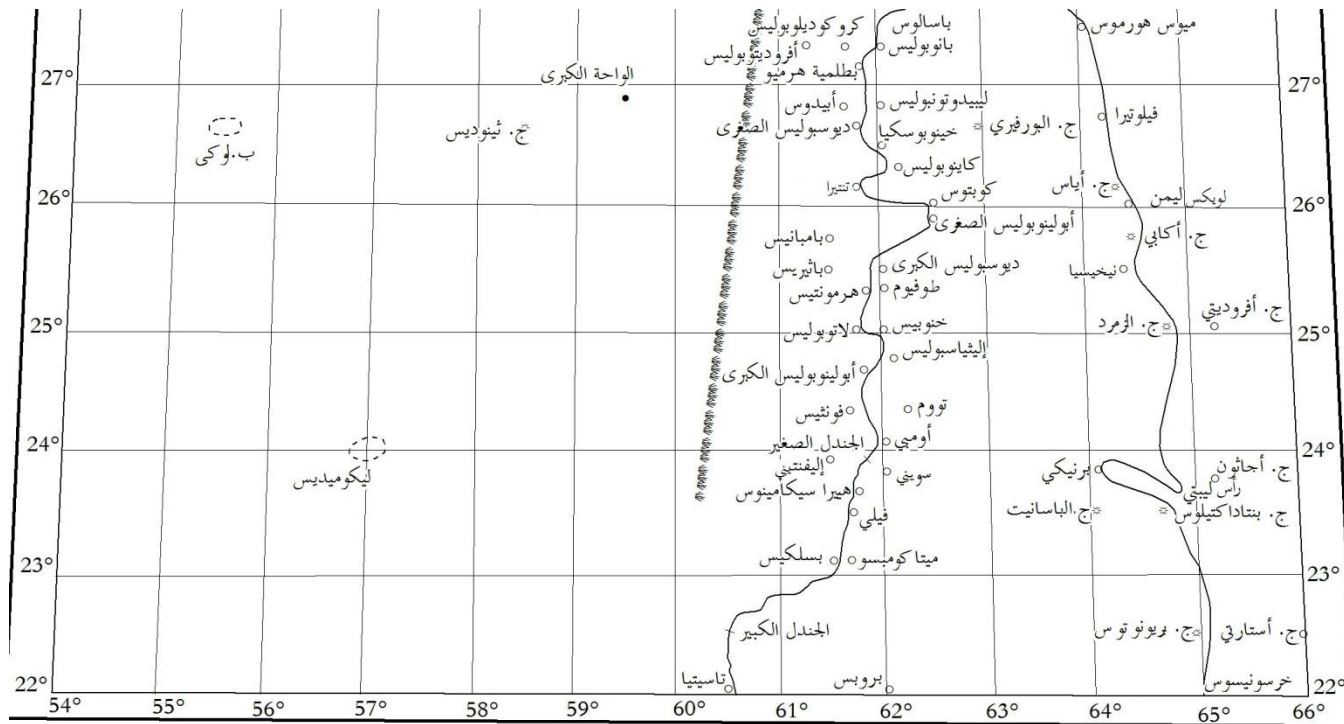 كروكوديلوبوليس
باسالوس
ميوس هورموس
أفروديتوبوليس
بانوبوليس
بطلمية هرميو
27°
27°
الواحة الكبرى
أبيدوس
ليبيدوتونبوليس
فيلوتيرا
ديوسبوليس الصغرى
خينوبوسكيا
ج. البورفيري
ج. ثينوديس
ب.لوكى
كاينوبوليس
تنتيرا
كوبتوس
ج. أياس
لويكس ليمن
26°
26°
أبولينوبوليس الصغرى
بامبانيس
ج. أكابي
باثيريس
ديوسبوليس الكبرى
نيخيسيا
هرمونتيس
طوفيوم
ج. أفروديتي
25°
25°
لاتوبوليس
خنوبيس
ج. الزمرد
إليثياسبوليس
أبولينوبوليس الكبرى
فونثيس
تووم
أومبي
الجندل الصغير
24°
24°
إليفنتيني
سويني
برنيكي
ج. أجاثون
ليكوميديس
هييرا سيكامينوس
رأس ليبتي
فيلي
ج.الباسانيت
ج. بنتاداكتيلوس
بسلكيس
ميتاكومبسو
23°
23°
الجندل الكبير
ج. بريونوتوس
ج. أستارتي
تاسيتيا
بروبس
خرسونيسوس
22°
22°
54° 55° 56° 57° 58° 59° 60° 61° 62° 63° 64° 65° 66°